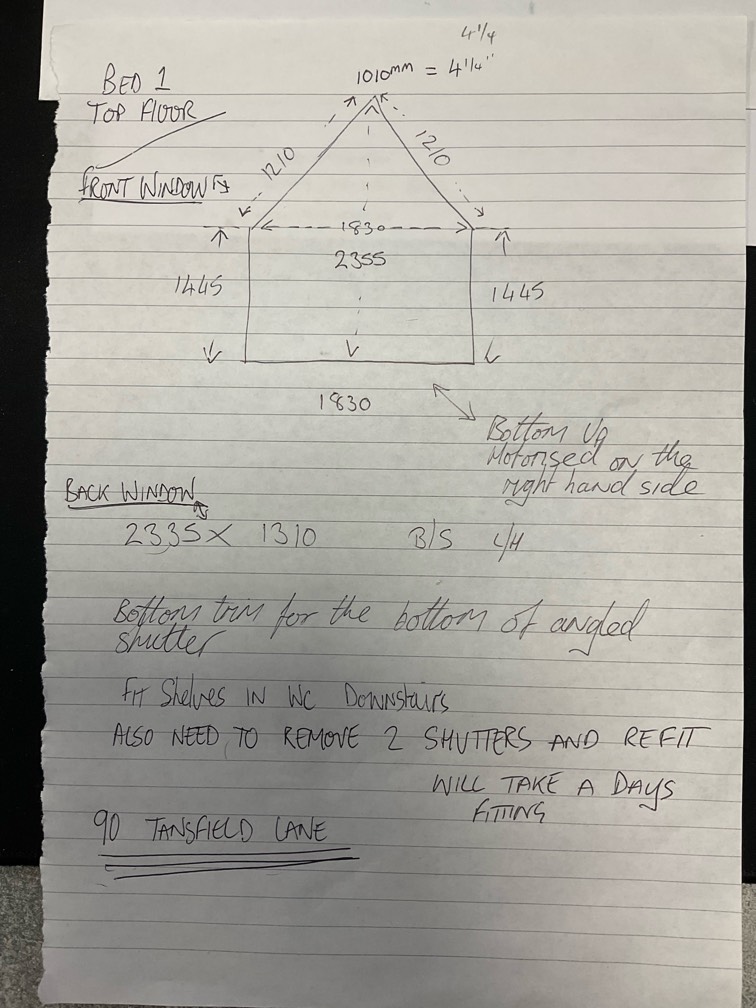 4 1/4
BED 1
1010mm = 4 1/4"
TOP FLOOR
1210
1210
FRONT WINDOW
1830
2355
1445
1445
1830
Bottom Up
Motorised on the
right hand side
BACK WINDOW
2335 x 1310 B/S L/H
Bottom trim for the bottom of angled
shutter
Fit Shelves IN WC Downstairs
ALSO NEED TO REMOVE 2 SHUTTERS AND REFIT
WILL TAKE A DAYS
FITTING
90 TANSFIELD LANE